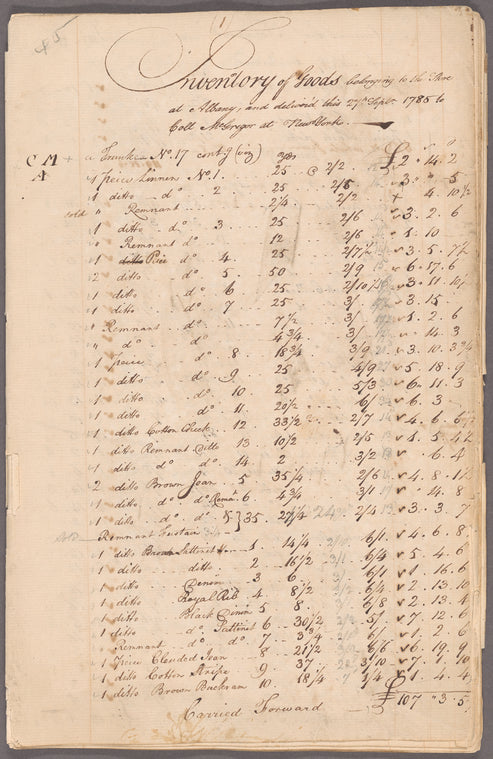 1
45
Inventory of Goods belonging to the Store
at Albany, and deliver'd this 27th Septr. 1785 to
Coll McGregor at New York.
C M + a Trunk No. 17 cont'g (viz) yds
A 1 Peice Linnens No. 1. 25 @ 2/2 £2 . 14 . 2
1 ditto do 2 25 2/5 3 " 5
sold " Remnant 2/4 2/2 4 . 10½
1 ditto do 3 25 2/6 3 . 2 . 6
" Remnant do 12 2/6 1 . 10
1 Peice do 4 25 2/7½ 3 . 5 . 7½
2 ditto do 5 50 2/9 6 . 17 . 6
1 ditto do 6 25 2/10½ 3 . 11 . 10½
1 ditto do 7 25 3/ 3 . 15
" Remnant do 7½ 3/ 1 . 2 . 6
" do do 4¾ 3/ 14 . 3
1 Peice do 8 18¾ 3/9 3 . 10 . 3¾
1 ditto do 9 25 4/9 5 . 18 . 9
1 ditto do 10 25 5/3 6 . 11 . 3
1 ditto do 11 20½ 6/ 6 . 3
1 ditto Cotton Check 12 33½ 2/7 4 . 6 . 6½
1 ditto Remnant Ditto 13 10½ 2/5 1 . 5 . 4½
1 ditto do do 14 2 3/2 6 . 4
2 ditto Brown Jean 5 35¼ 2/6 4 . 8 . 1½
1 ditto do do Remt. 6 4¾ 3/1 14 . 8
1 ditto do do 35 27¼ 2/4 3 . 3 . 7
sold Remnant Fustian
1 ditto Sattinet 1 14¼ 6/1 4 . 6 . 8
1 ditto ditto 2 16½ 6/4 5 . 4 . 6
1 ditto Denim 3 6 6/1 1 . 16 . 6
1 ditto Royal Rib 4 8½ 6/4 2 . 13 . 10
1 ditto Black Denim 5 8 6/8 2 . 13 . 4
1 ditto do Sattinet 6 30½ 5/ 7 . 12 . 6
Remnant do do 7 3¾ 6/ 1 . 2 . 6
1 Peice Clouded Jean 8 21½ 6/6 6 . 19 . 9
1 ditto Cotton Stripe 9 37 3/10 7 . 1 . 10
1 ditto Brown Buckram 10 18¼ 1/4 1 . 4 . 4
Carried Forward £107 " 3 . 5